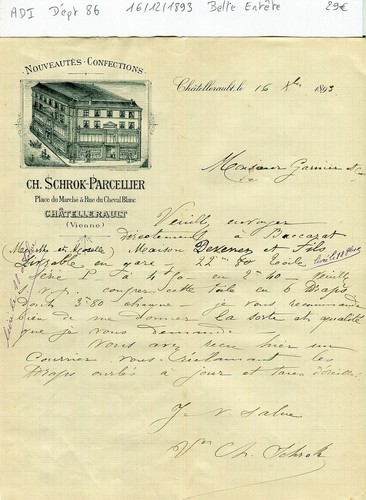 ADI Dépt 86 16/12/1893 Belle Entête 29€
NOUVEAUTÉS - CONFECTIONS
Châtellerault, le 16 Xbre 1893
CH. SCHROK-PARCELLIER
Place du Marché & Rue du Cheval Blanc
CHÂTELLERAULT
(Vienne)
Monsieur Garnier et
Veuillez envoyer
directement à Baccarat
(Meurthe et Moselle) Maison Devenez et fils
en gare 22 m 80 toile
Série P à 4f en 2m40 Veuillez
s.v.p. couper cette toile en 6 Draps
dont 3m80 chaque je vous recommande
bien de me donner la sorte et qualité
que je vous demande.
Vous avez reçu hier un
Courrier vous réclamant les
Draps ourlés à jour et taies d'oreiller
Je v salue
Ch. Schrok